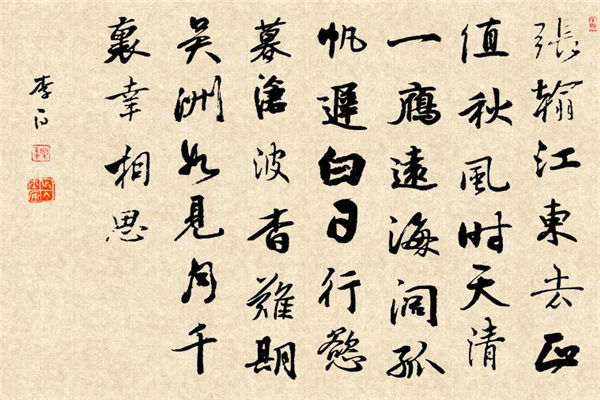 張翰江東去正
值秋風时天清
一鴈遠海阔孤
帆遲白日行慾
暮滄波杳難期
吴洲如見月千
裏幸相思
李